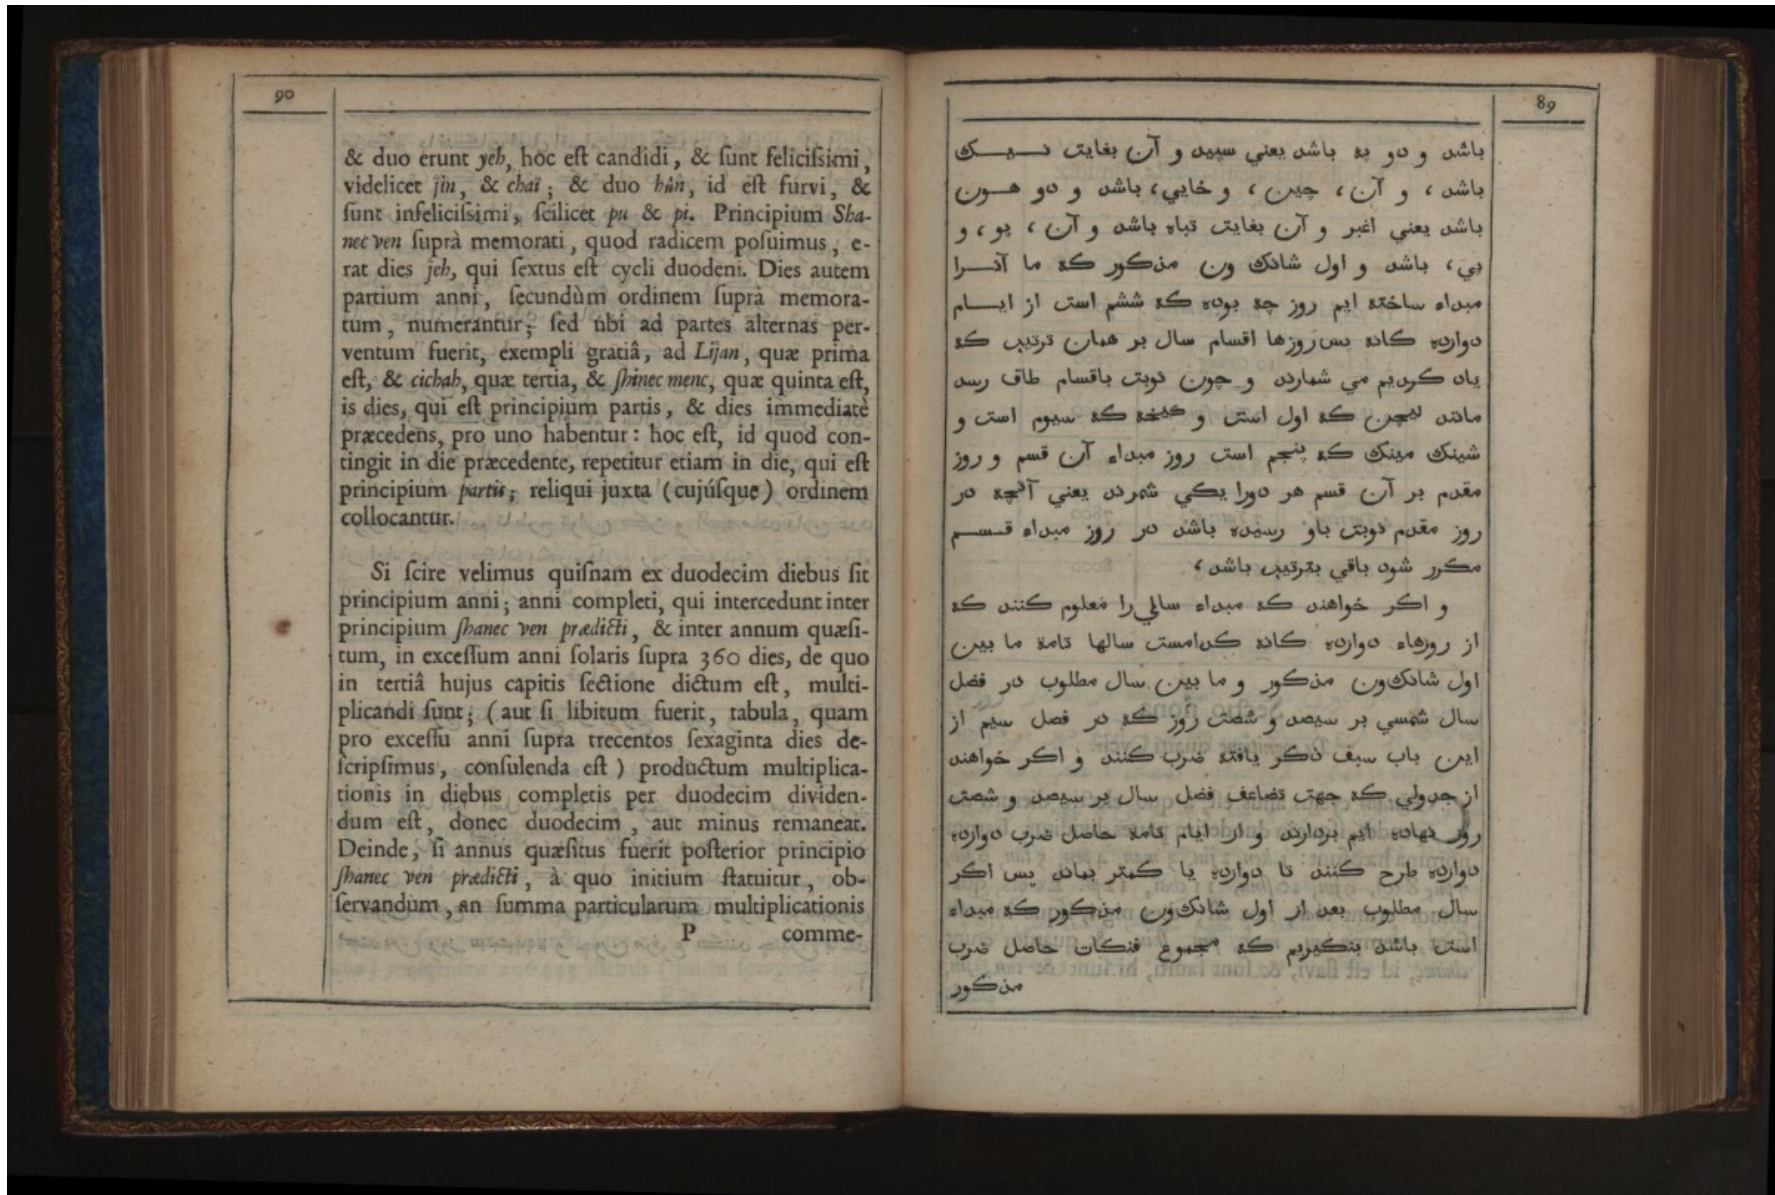 90
& duo erunt yeh, hoc eſt candidi, & ſunt feliciſsimi,
videlicet jin, & chai; & duo hûn, id eſt furvi, &
ſunt infeliciſsimi, ſcilicet pu & pi. Principium Sha-
nec ven ſuprà memorati, quod radicem poſuimus, e-
rat dies jeh, qui ſextus eſt cycli duodeni. Dies autem
partium anni, ſecundùm ordinem ſuprà memora-
tum, numerantur; ſed ubi ad partes alternas per-
ventum fuerit, exempli gratiâ, ad Lijan, quæ prima
eſt, & cichah, quæ tertia, & ſhinec menc, quæ quinta eſt,
is dies, qui eſt principium partis, & dies immediatè
præcedens, pro uno habentur: hoc eſt, id quod con-
tingit in die præcedente, repetitur etiam in die, qui eſt
principium partis; reliqui juxta (cujúſque) ordinem
collocantur.
Si ſcire velimus quiſnam ex duodecim diebus ſit
principium anni; anni completi, qui intercedunt inter
principium ſhanec ven prædicti, & inter annum quæſi-
tum, in exceſſum anni ſolaris ſupra 360 dies, de quo
in tertiâ hujus capitis ſectione dictum eſt, multi-
plicandi ſunt; (aut ſi libitum fuerit, tabula, quam
pro exceſſu anni ſupra trecentos ſexaginta dies de-
ſcripſimus, conſulenda eſt) productum multiplica-
tionis in diebus completis per duodecim dividen-
dum eſt, donec duodecim, aut minus remaneat.
Deinde, ſi annus quæſitus fuerit poſterior principio
ſhanec ven prædicti, à quo initium ſtatuitur, ob-
ſervandum, an ſumma particularum multiplicationis
P comme-
89
باشد و دو یه باشد یعني سپید و آن بغایت نیک
باشد، و آن، چین، و خایي، باشد و دو هون
باشد یعني اغبر و آن بغایت تباه باشد و آن، پو، و
پي، باشد و اول شانك ون مذکور که ما آنرا
مبداء ساخته ایم روز چه بوده که ششم است از ایام
دوازده کانه پس روزها اقسام سال بر همان ترتیب که
یاد کردیم مي شمارند و چون نوبت باقسام طاق رسد
مانند لیچن که اول است و کیخه که سیوم است و
شینك مینك که پنجم است روز مبداء آن قسم و روز
مقدم بر آن قسم هر دورا یکي شمرند یعني آنچه در
روز مقدم نوبت باو رسیده باشد در روز مبداء قسم
مکرر شود باقي بترتیب باشد،
و اکر خواهند که مبداء سالي را معلوم کنند که
از روزهاء دوازده کانه کدامست سالها تامه ما بین
اول شانك ون مذکور و ما بین سال مطلوب در فضل
سال شمسي بر سیصد و شصت روز که در فصل سیم از
این باب سبق ذکر یافته ضرب کنند و اکر خواهند
از جدولي که جهت تضاعف فضل سال بر سیصد و شصت
روز نهاده ایم بردارند و از ایام تامه حاصل ضرب دوازده
دوازده طرح کنند تا دوازده یا کمتر بماند پس اکر
سال مطلوب بعد از اول شانك ون مذکور که مبداء
است باشد بنکیریم که مجموع فنکان حاصل ضرب
مذکور